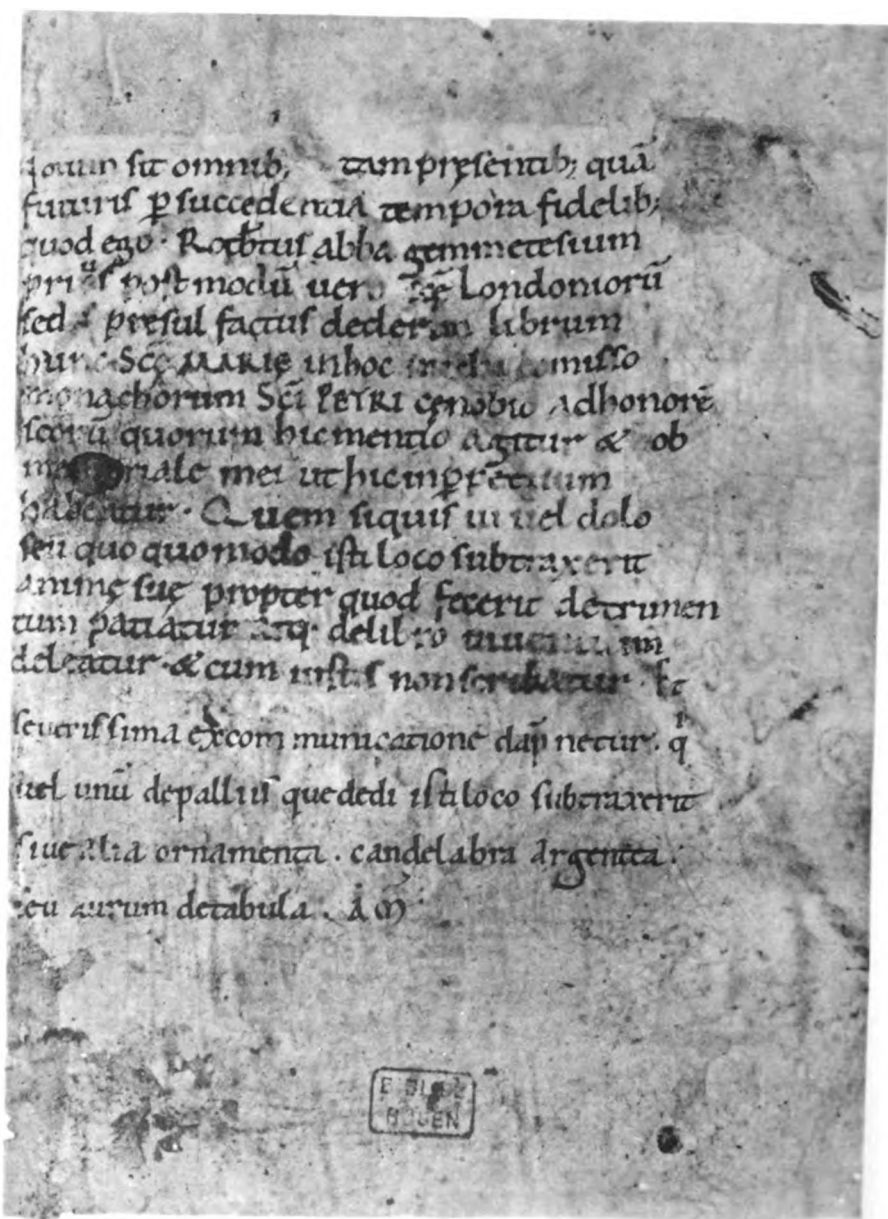 Notum sit omnib; tam presentib; quā
futuris ꝑ succedentia tempora fidelib;
quod ego · Rotb̄tus abba gemmetesium
prius postmodū uero Londoniorū
sed presul factus dederam librum
hunc Sc̄ę MARIĘ in hoc misso
monachorum Sc̄i PETRI cenobio ad honorē
sc̄orū quorum hic mentio agitur & ob
memoriale mei ut hic inꝑpetuum
habeatur · Quem siquis ui uel dolo
seu quoquomodo isti loco subtraxerit
animę suę propter quod fecerit detrimen
tum patiatur atq; de libro uiuentium
deleatur · & cum iustis non scribatur · Et
seuerissima excommunicatione dāpnetur · qi
uel unū de palliis que dedi isti loco subtraxerit
siue alia ornamenta · candelabra argentea ·
seu aurum de tabula · AM̄
BIBL
ROUEN